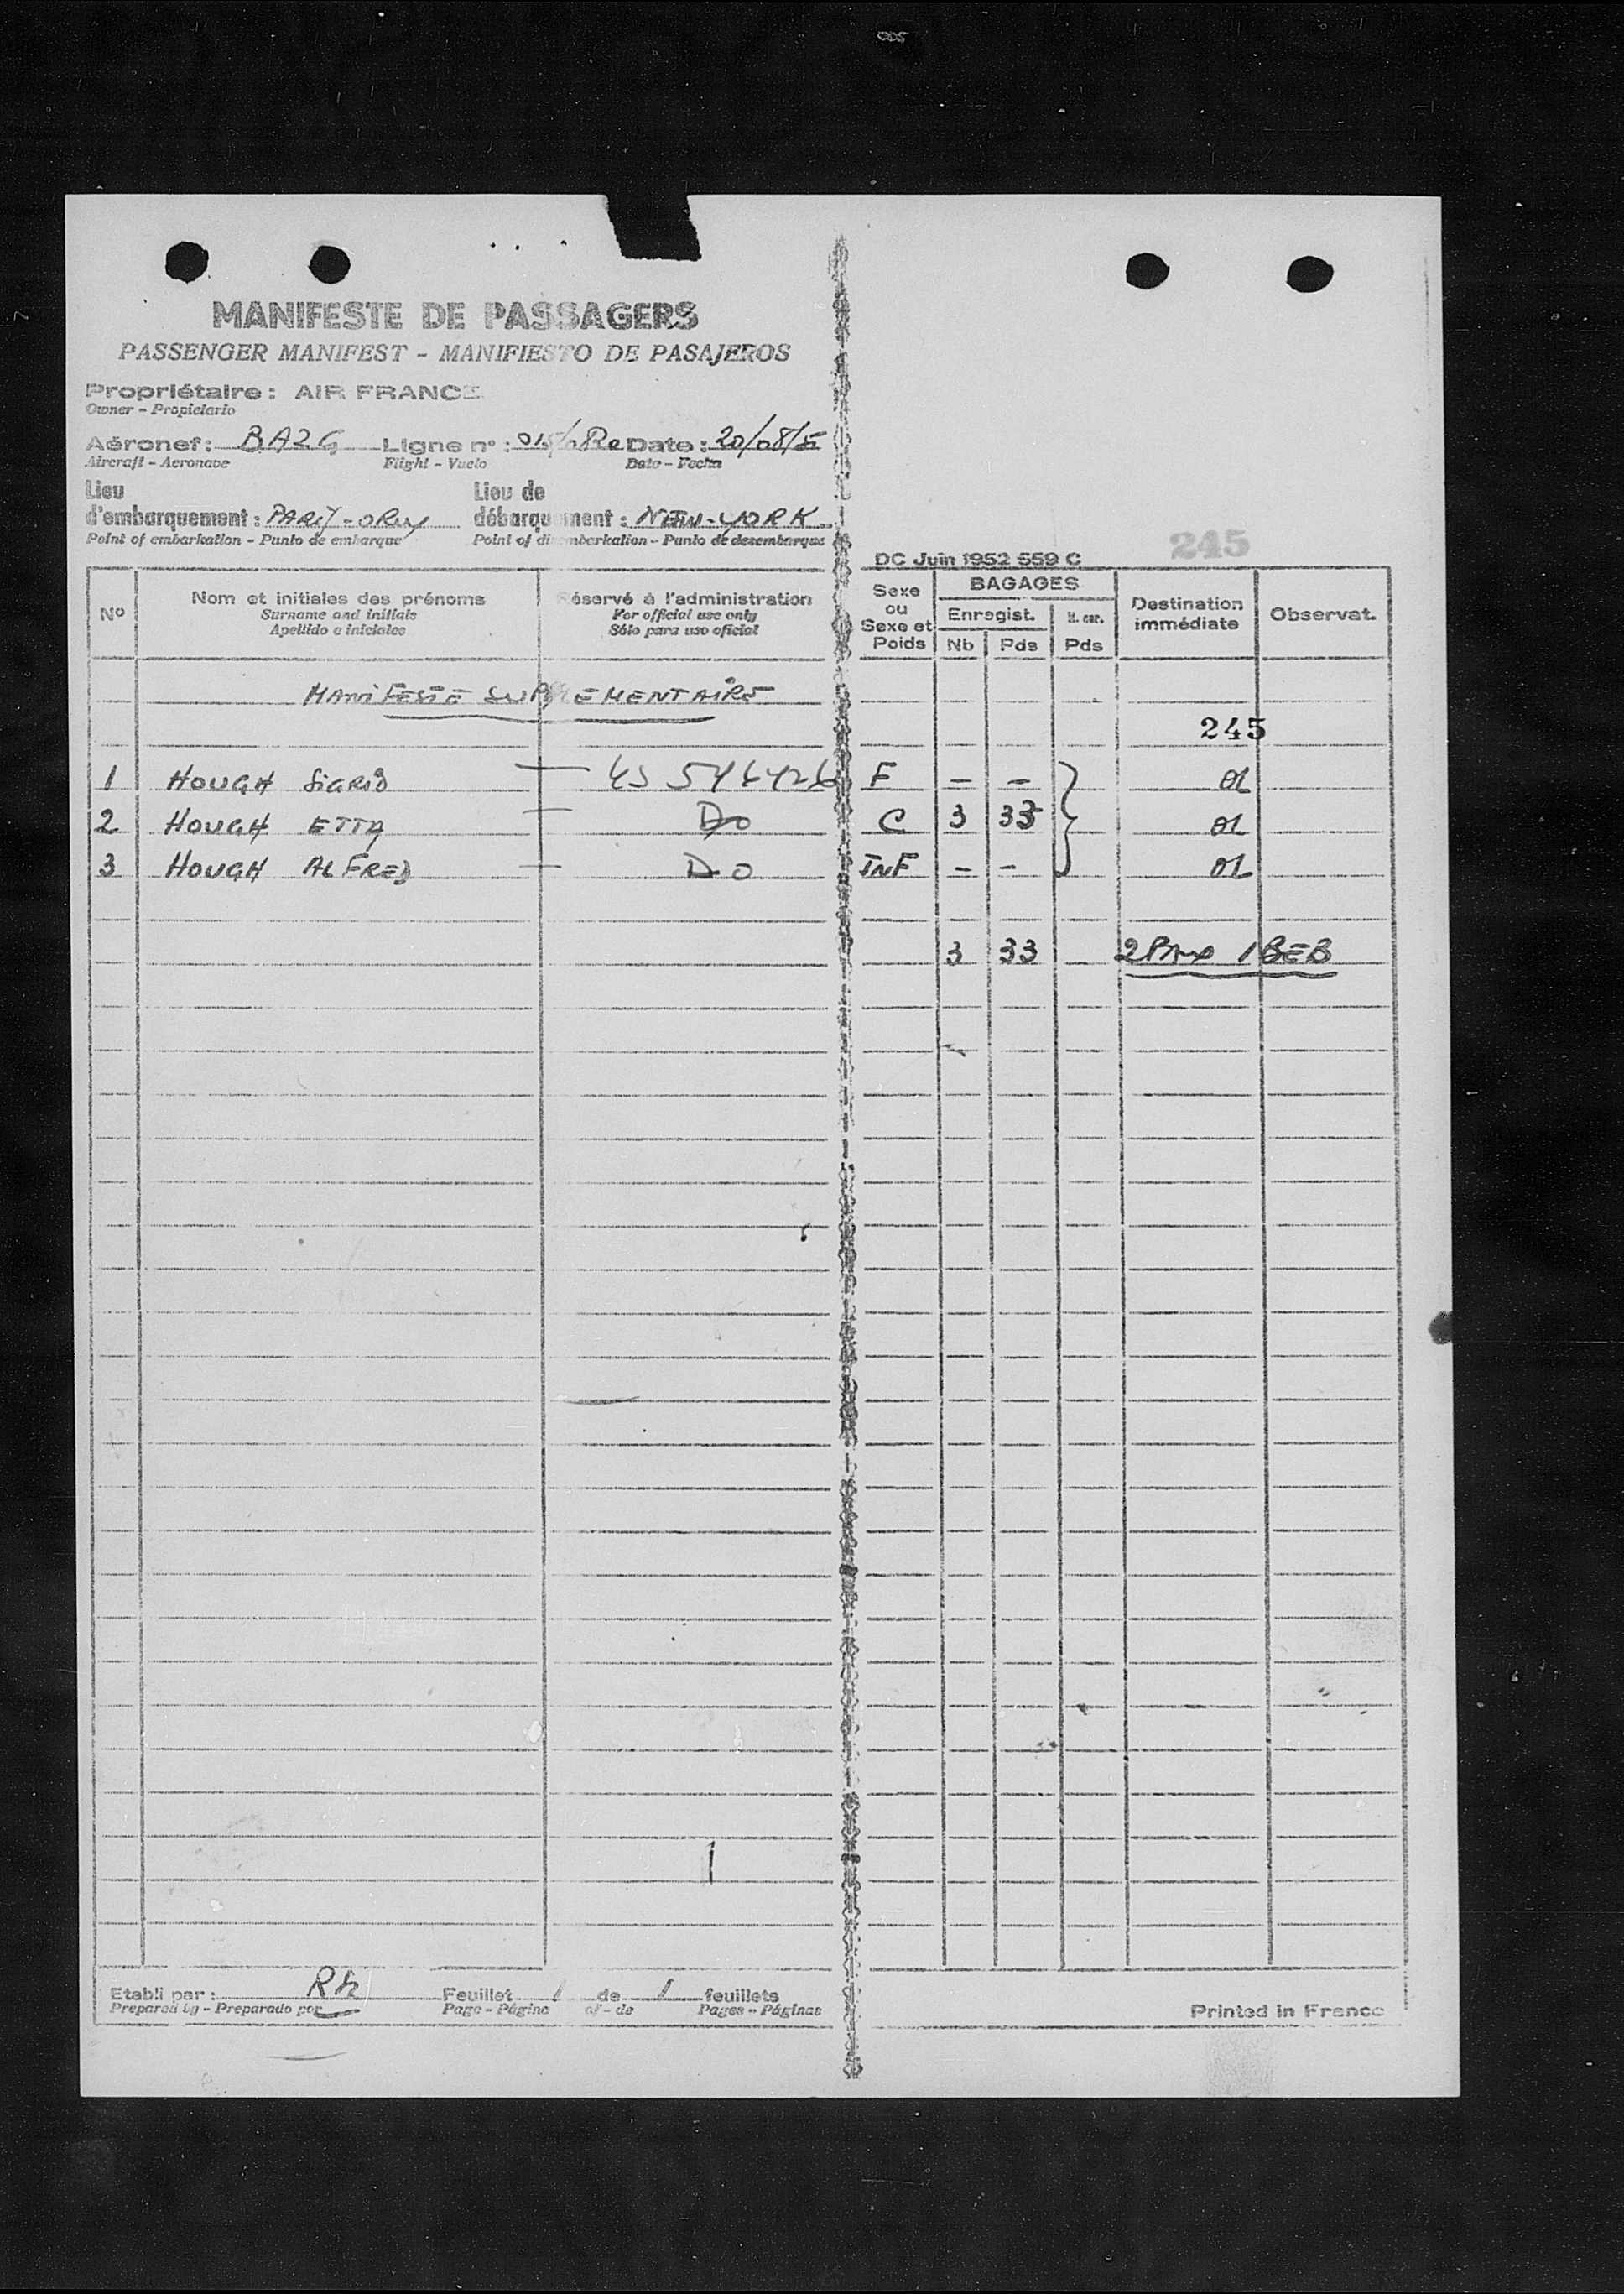 MANIFESTE DE PASSAGERS
PASSENGER MANIFEST - MANIFIESTO DE PASAJEROS
Propriétaire : AIR FRANCE
Owner - Propietario
Aéronef : BAZG Ligne n° : 015/ Date : 20/08/5
Aircraft - Aeronave Flight - Vuelo Date - Fecha
Lieu d'embarquement : PARIS - ORLY Lieu de débarquement : NEW-YORK
Point of embarkation - Punto de embarque Point of disembarkation - Punto de desembarque
245
DC Juin 1952 559 C
N° Nom et initiales des prénoms Réservé à l'administration Sexe ou Sexe et Poids BAGAGES Destination immédiate Observat.
Surname and initials For official use only Enregist.
Apellido e iniciales Sólo para uso oficial Nb Pds Pds
MANIFESTE SUPPLEMENTAIRE
245
1 HOUGH SIGRID — F — —
2 HOUGH ETTA — DO C 3 33
3 HOUGH ALFRED — DO INF — —
3 33 2 PAX 1 BEB
Etabli par : Feuillet 1 de 1 feuillets
Prepared by - Preparado por Page - Página of - de Pages - Páginas
Printed in France